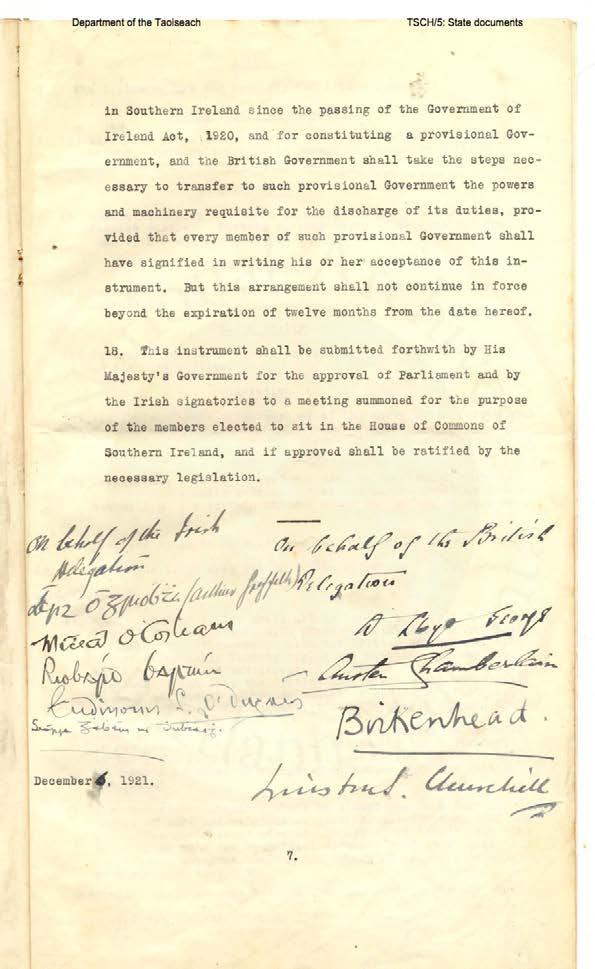 Department of the Taoiseach
TSCH/5: State documents
in Southern Ireland since the passing of the Government of
Ireland Act, 1920, and for constituting a provisional Gov-
ernment, and the British Government shall take the steps nec-
essary to transfer to such provisional Government the powers
and machinery requisite for the discharge of its duties, pro-
vided that every member of such provisional Government shall
have signified in writing his or her acceptance of this in-
strument. But this arrangement shall not continue in force
beyond the expiration of twelve months from the date hereof.
18. This instrument shall be submitted forthwith by His
Majesty's Government for the approval of Parliament and by
the Irish signatories to a meeting summoned for the purpose
of the members elected to sit in the House of Commons of
Southern Ireland, and if approved shall be ratified by the
necessary legislation.
On behalf of the Irish
Delegation
Art Ó Gríobhtha (Arthur Griffith)
Mícheál Ó Coileain
Riobárd Bartún
On behalf of the British
Delegation
D Lloyd George
Austen Chamberlain
Birkenhead.
Winston S. Churchill
December 6, 1921.
7.